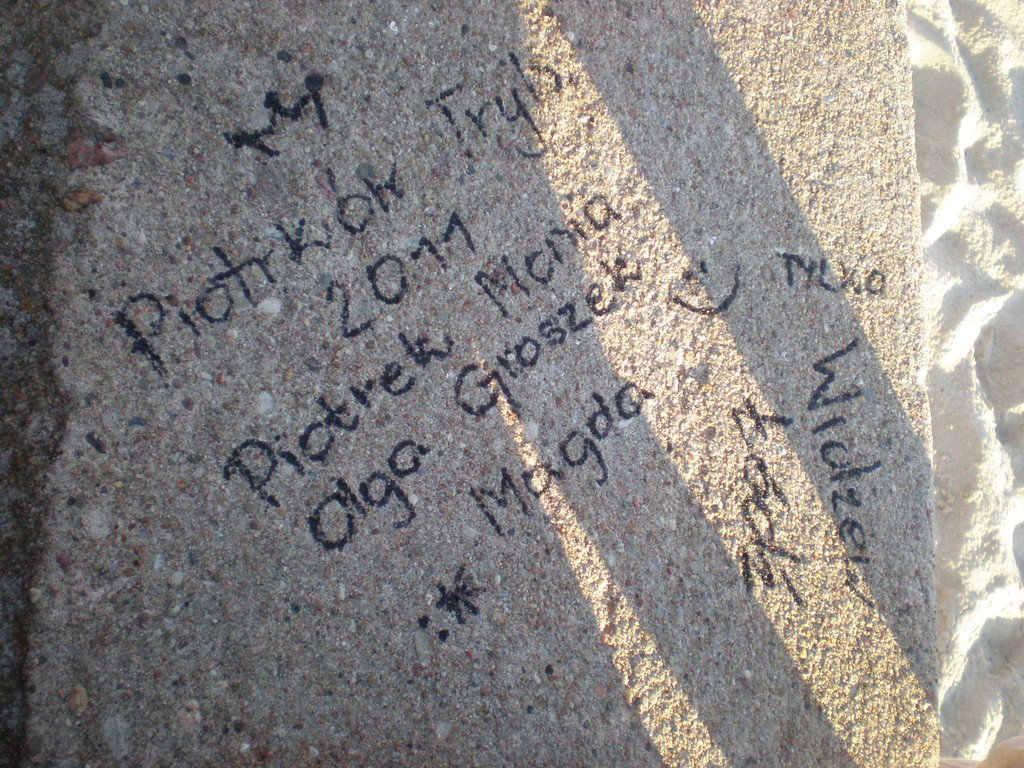 My
Piotrków Tryb.
2011
Piotrek Monia
Olga Groszek :)
Magda
:*
TYLKO
Widzew